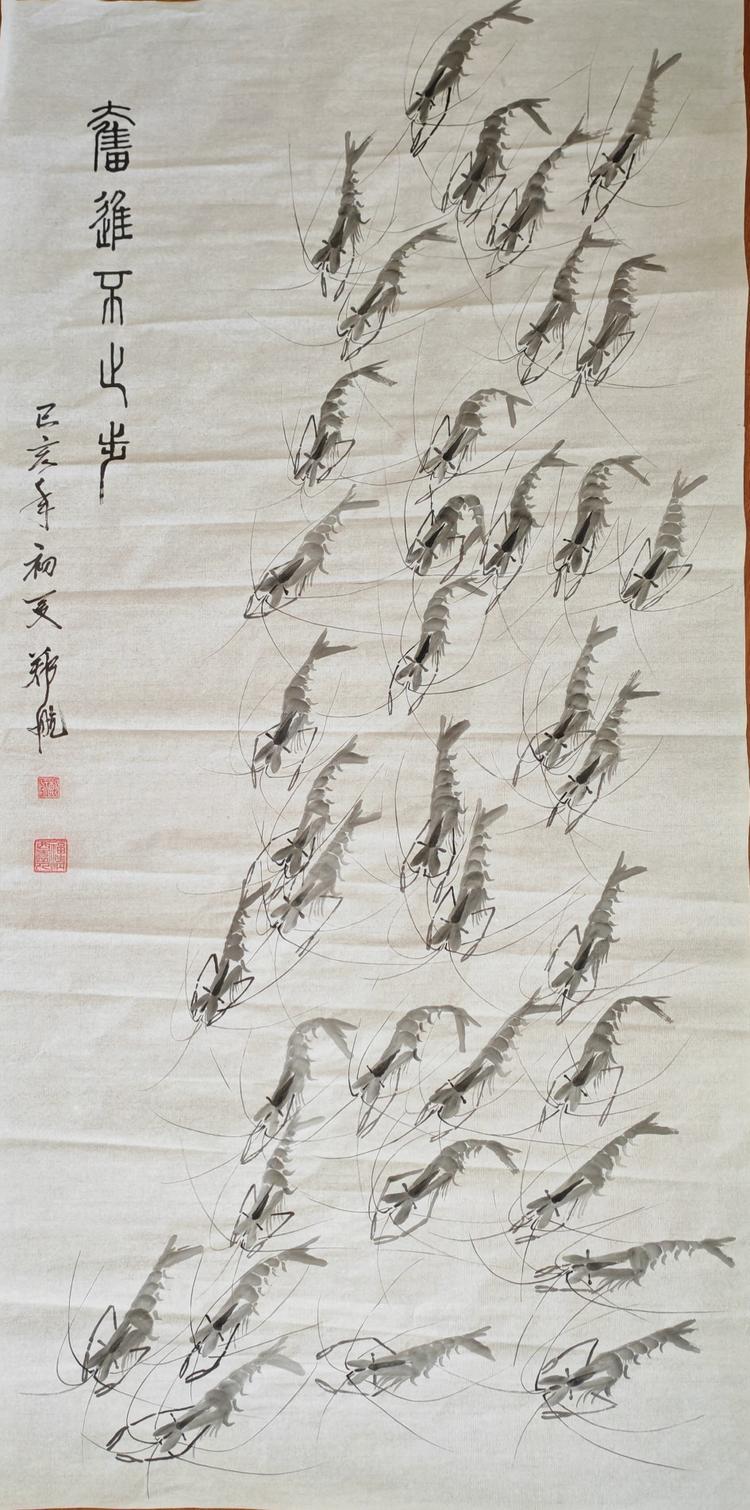 奮進不止步
己亥年初夏鄭航